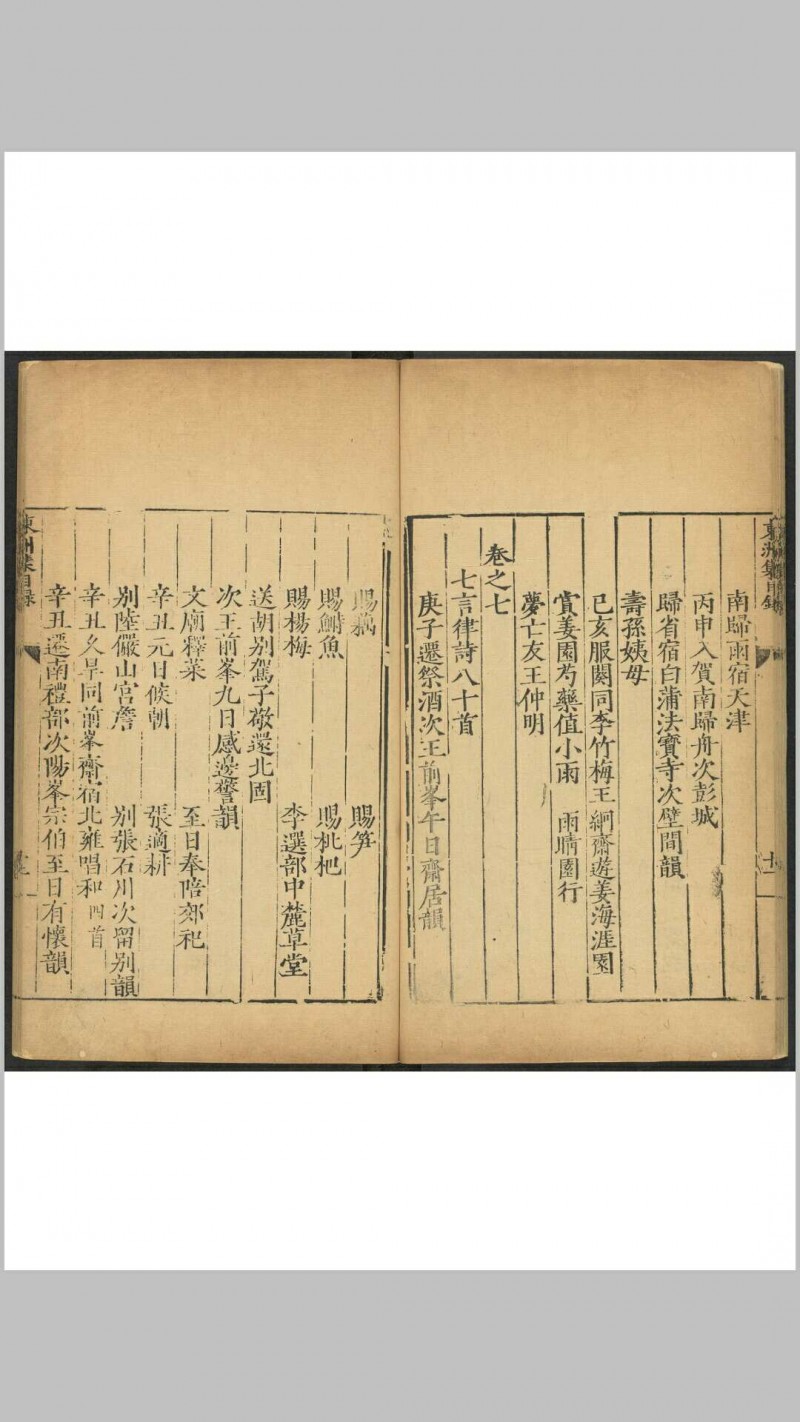 東洲集目錄
南歸雨宿天津
丙申入賀南歸舟次彭城
歸省宿白蒲法寶寺次壁間韻
壽孫姨母
己亥服闋同李竹梅王綗齋遊姜海涯園
賞姜園芍藥值小雨　雨晴園行
夢亡友王仲明
卷之七
七言律詩八十首
庚子遷祭酒次王前峯午日齋居韻
賜藕　賜笋
賜鰣魚　賜枇杷
賜楊梅　李選部中麓草堂
送胡別駕子敬還北固
次王前峯九日感邊警韻
文廟釋菜　至日奉陪郊祀
辛丑元日候朝　張適耕
別陸儼山宮詹　別張石川次留別韻
辛丑久旱同前峯齋宿北雍唱和四首
辛丑遷南禮部次陽峯宗伯至日有懷韻
東洲集目錄